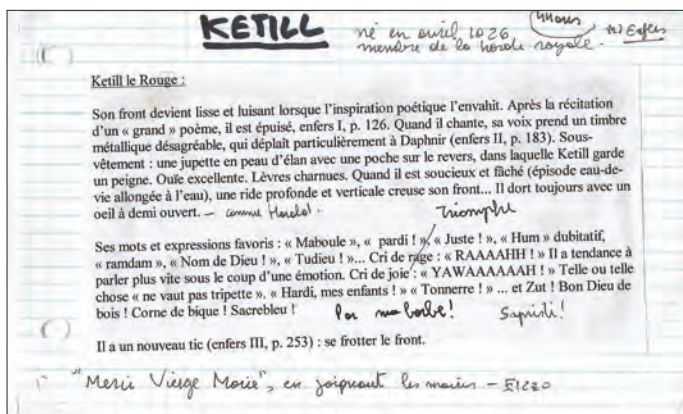 KETILL né en avril 1026, 4Hours
membre de la horde royale.
Ketill le Rouge :
Son front devient lisse et luisant lorsque l'inspiration poétique l'envahit. Après la récitation
d'un « grand » poème, il est épuisé, enfers I, p. 126. Quand il chante, sa voix prend un timbre
métallique désagréable, qui déplait particulièrement à Daphnir (enfers II, p. 183). Sous-
vêtement : une jupette en peau d'élan avec une poche sur le revers, dans laquelle Ketill garde
un peigne. Ouïe excellente. Lèvres charnues. Quand il est soucieux et fâché (épisode eau-de-
vie allongée à l'eau), une ride profonde et verticale creuse son front... Il dort toujours avec un
oeil à demi ouvert. – comme Harald.
Triomphe
Ses mots et expressions favoris : « Maboule », « pardi ! », « Juste ! », « Hum » dubitatif,
« ramdam », « Nom de Dieu ! », « Tudieu ! »... Cri de rage : « RAAAAHH ! » Il a tendance à
parler plus vite sous le coup d'une émotion. Cri de joie : « YAWAAAAAAH ! » Telle ou telle
chose « ne vaut pas tripette ». « Hardi, mes enfants ! » « Tonnerre ! » ... et Zut ! Bon Dieu de
bois ! Corne de bique ! Sacrebleu ! Par ma barbe! Sapristi!
Il a un nouveau tic (enfers III, p. 253) : se frotter le front.
"Merci Vierge Marie", en joignant les mains –